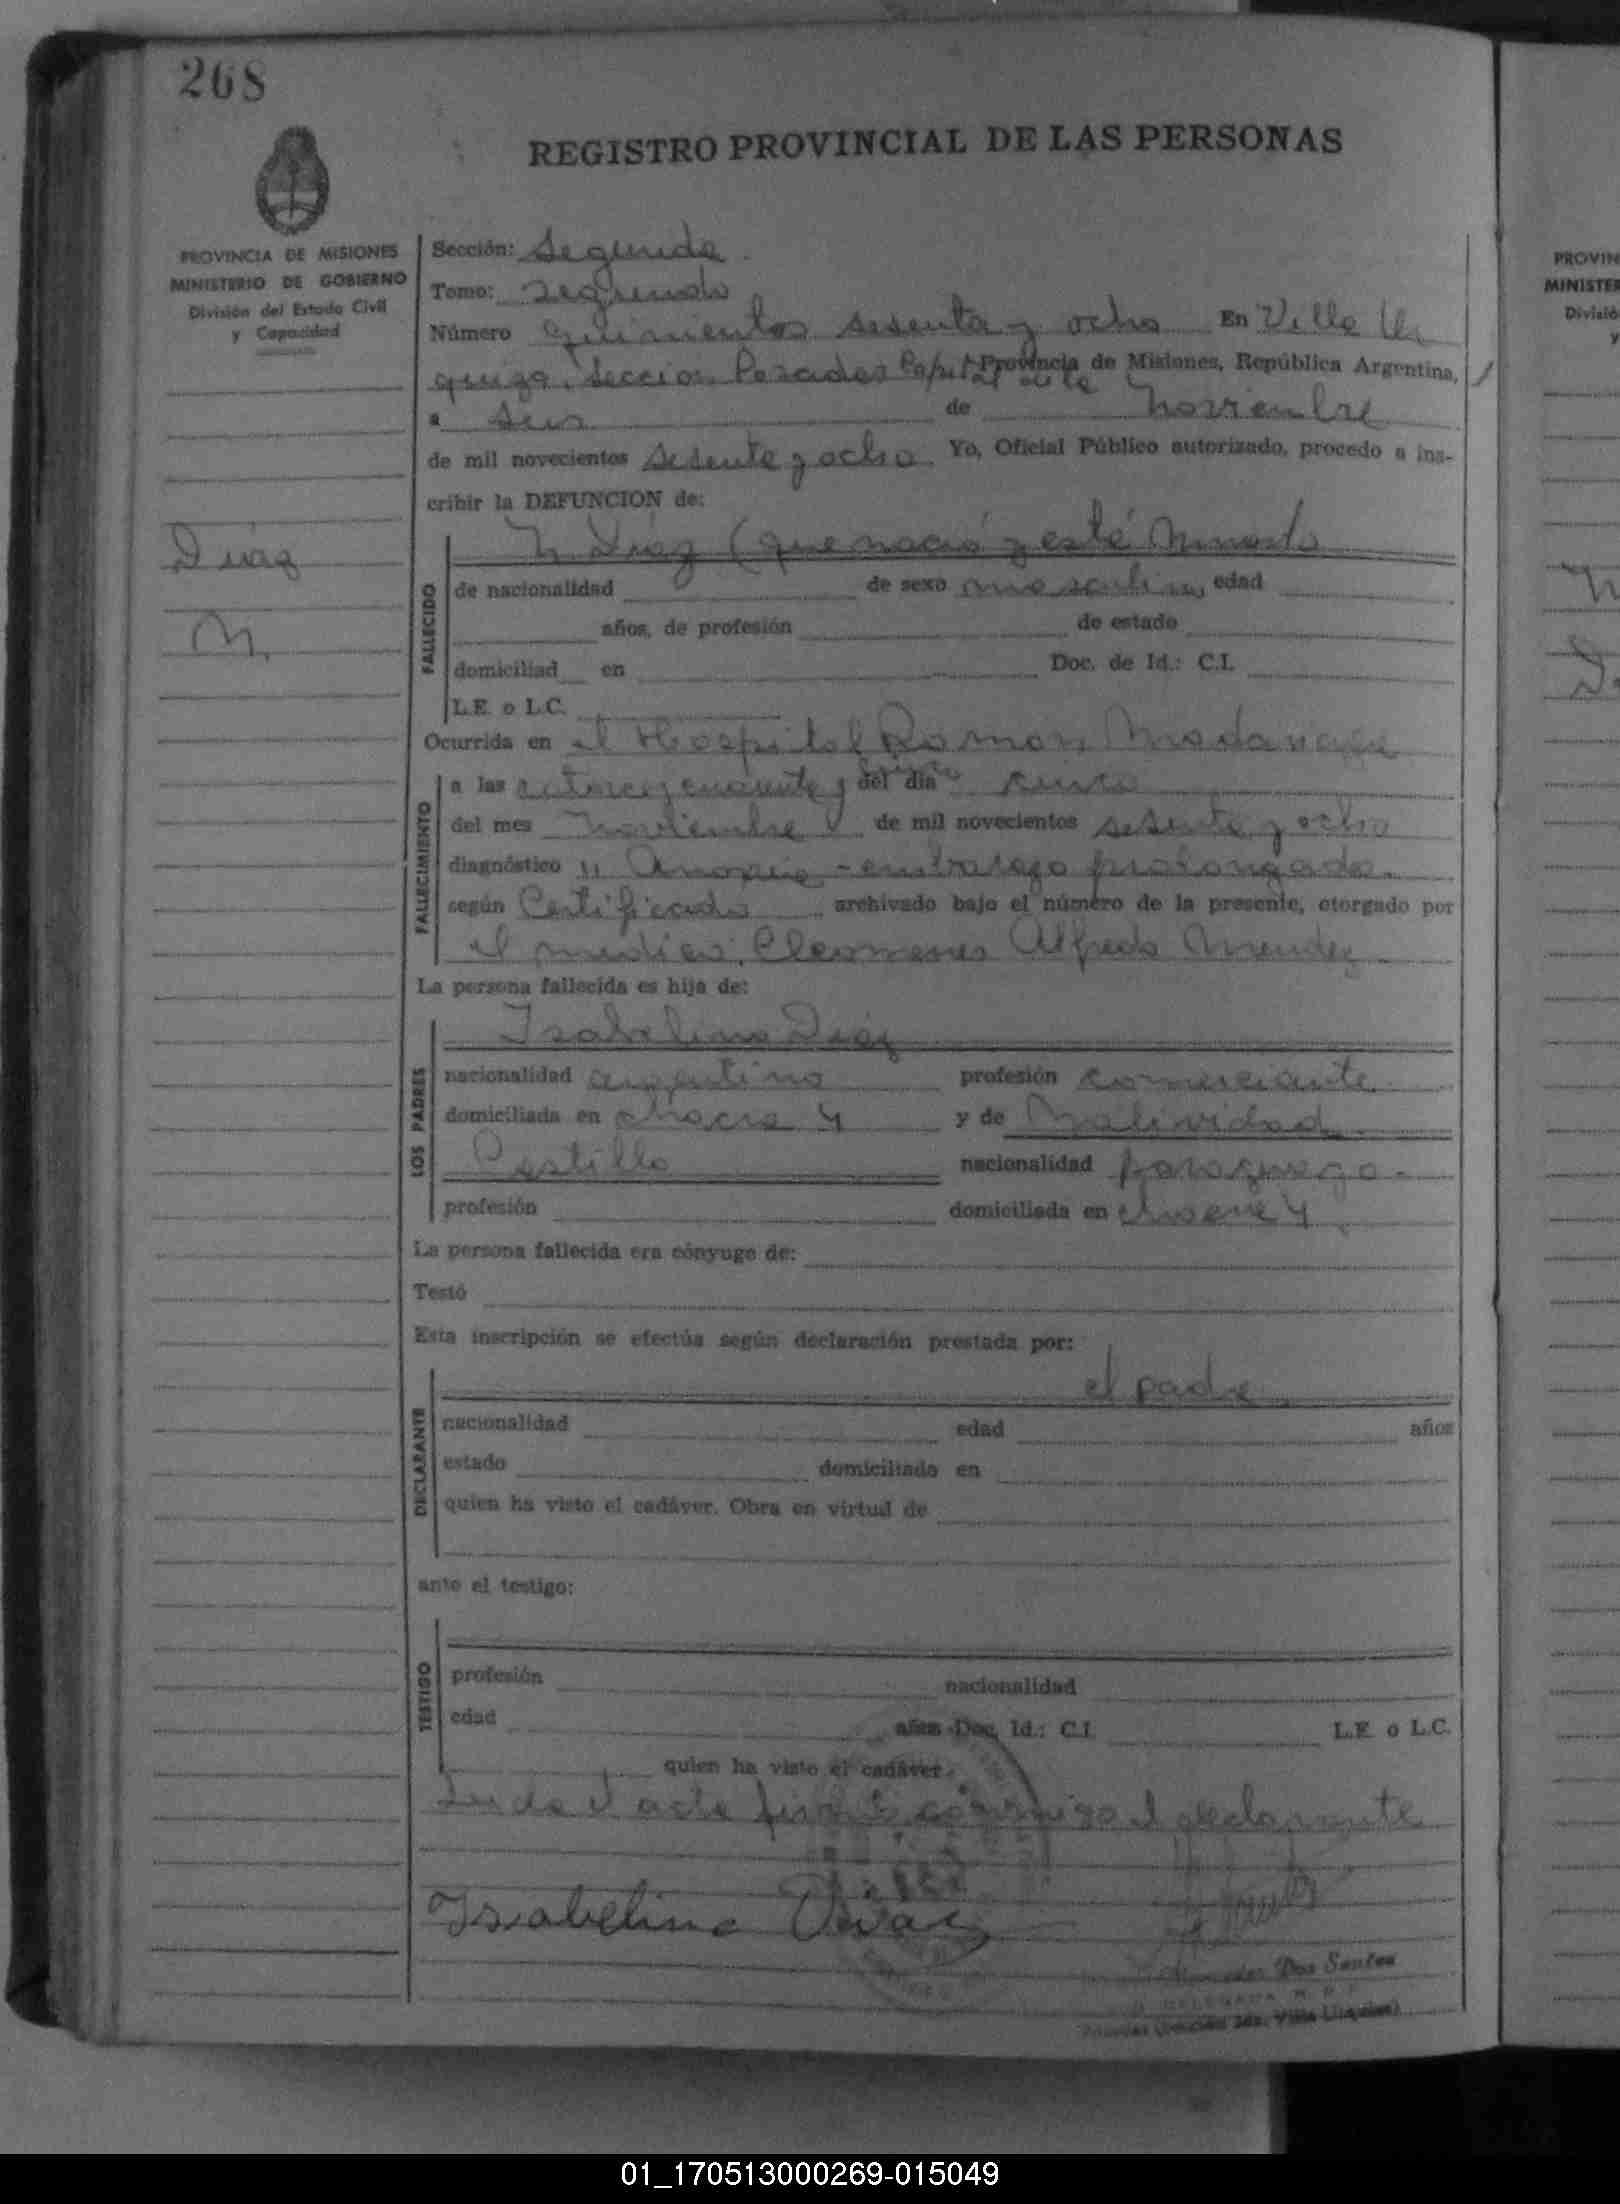 268
REGISTRO PROVINCIAL DE LAS PERSONAS
PROVINCIA DE MISIONES
MINISTERIO DE GOBIERNO
División del Estado Civil
y Capacidad
Sección: Segunda
Tomo: Segundo
Número quinientos sesenta y ocho En Villa Ur
quiza, Sección Posadas Capital de la Provincia de Misiones, República Argentina,
a seis de Noviembre
de mil novecientos sesenta y ocho Yo, Oficial Público autorizado, procedo a ins-
cribir la DEFUNCION de:
Diaz
N.
FALLECIDO
N Diaz (que nació y está muerto
de nacionalidad de sexo masculino, edad
años, de profesión de estado
domiciliad en Doc. de Id.: C.I.
L.E. o L.C.
Ocurrida en el Hospital Ramon Madariaga
FALLECIMIENTO
a las catorce y cuarenta y cinco del día cinco
del mes Noviembre de mil novecientos sesenta y ocho
diagnóstico " Anoxia - embarazo prolongado.
según Certificado archivado bajo el número de la presente, otorgado por
el medico: Cleomenes Alfredo Mendez
La persona fallecida es hija de:
LOS PADRES
Isabelino Diaz
nacionalidad argentino profesión comerciante
domiciliada en chacra 4 y de Natividad
Castillo nacionalidad paraguaya.
profesión domiciliada en chacra 4
La persona fallecida era cónyuge de:
Testó
Esta inscripción se efectúa según declaración prestada por:
DECLARANTE
el padre
nacionalidad edad años
estado domiciliado en
quien ha visto el cadáver. Obra en virtud de
ante el testigo:
TESTIGO
profesión nacionalidad
edad años Doc. Id.: C.I. L.E. o L.C.
quien ha visto el cadáver.
Leida el acta firma conmigo el declarante
Isabelino Diaz
Dos Santos
DELEGADA R. P. P.
Posadas (Sección 2da. Villa Urquiza)
PROVIN
MINISTER
Divisió
y
01_170513000269-015049